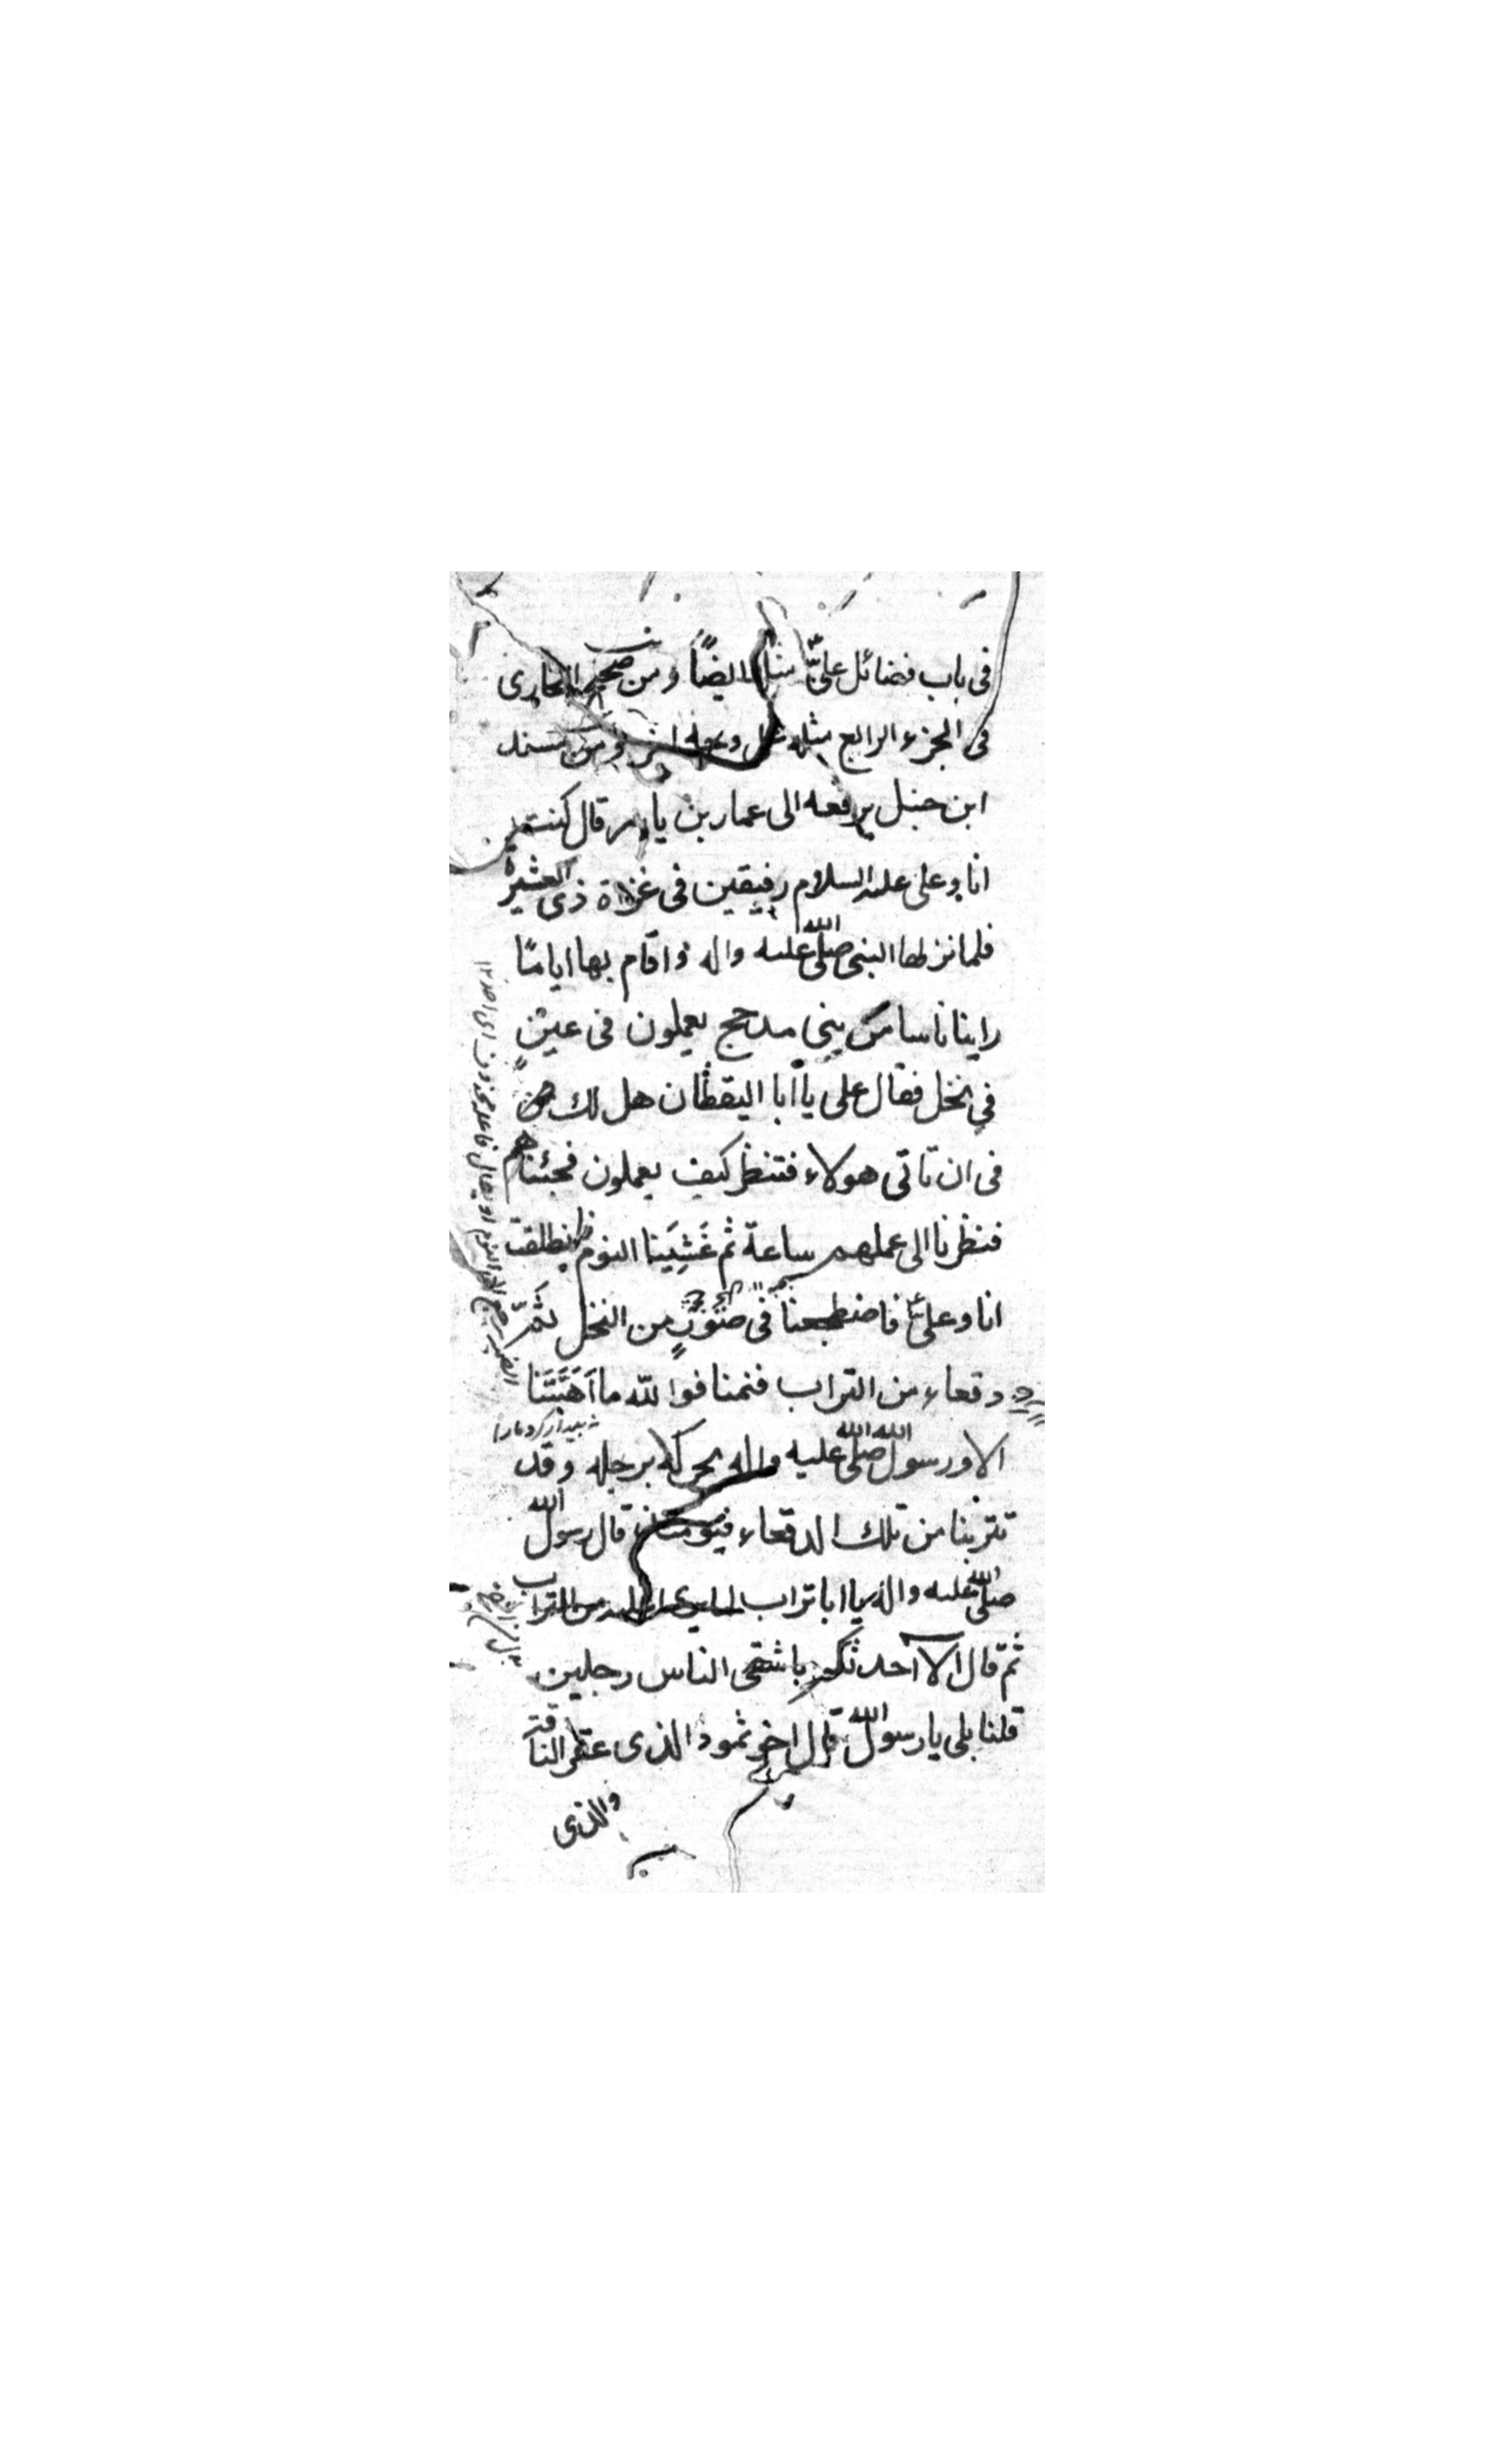 فى باب فضائل على ايضًا ومن صحيح البخارى
فى الجزء الرابع مثله ومن مسند
ابن حنبل يرفعه الى عمار بن ياسر قال كنت
انا وعلى عليه السلام رفيقين فى غزاة ذى العشيرة
فلما نزلها النبى صلى الله عليه واله واقام بها ايامًا
راينا ناسا من بنى مدحج يعملون فى عينٍ
فى نخل فقال على يا ابا اليقظان هل لك
فى ان تاتى هولاء فتنظر كيف يعملون فجئناهم
فنظرنا الى عملهم ساعة ثم غَشِيَنا النوم فانطلقت
انا وعلى فاضطجعنا فى صَوْرٍ من النخل ثمّ
دقعاء من التراب فنمنا فوالله ما اَهَبَّنَا
بيدار كرد مارا
الا ورسول الله صلى الله عليه واله يحركنا برجله وقد
تتربنا من تلك الدقعاء فيومئذ قال رسول الله
صلى الله عليه واله يا ابا تراب لما يرى عليه من التراب
ثمّ قال الا احدثكم باشقى الناس رجلين
قلنا بلى يا رسول الله قال اخو ثمود الذى عقر الناقة
والذى